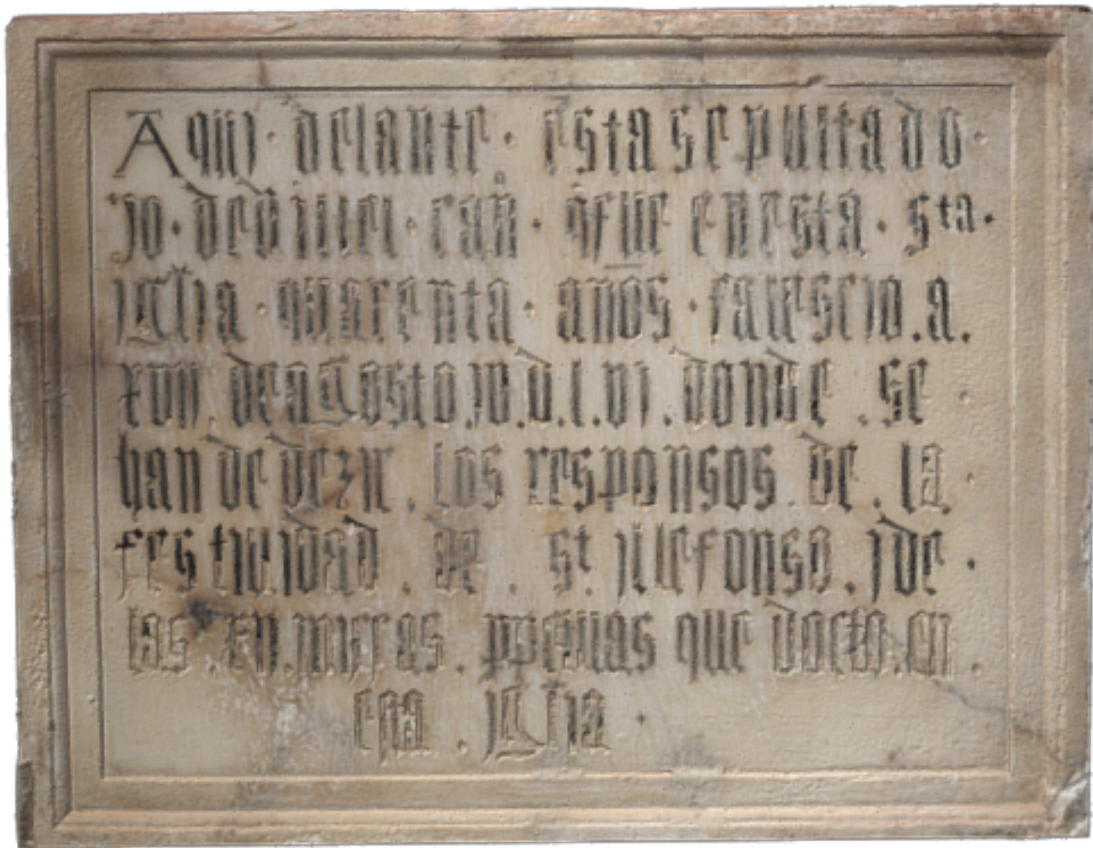 Aqui · delante · esta sepultado ·
jo · de villei · can · q̃ fue en esta · sta ·
iglia · quarenta · años · fallescio . a .
xvii . de agosto . M . d . l . vi . donde . se
han de dezir . los responsos . de . la
festiuidad . de . st . illefonso . j de
las . xii . misas . ppetuas que doto . en .
esta . iglia .